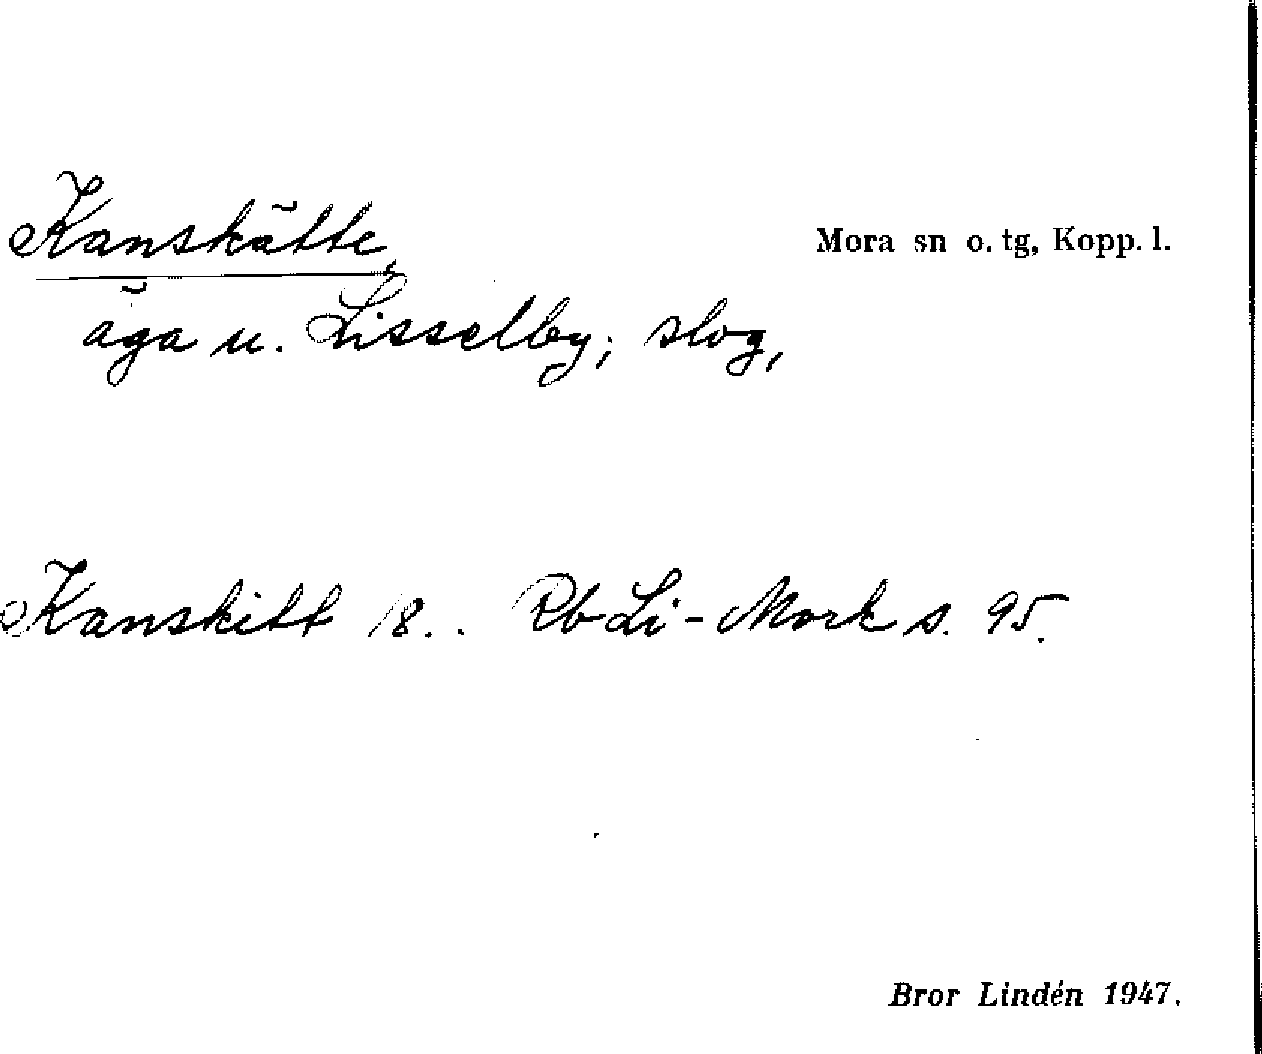 Kanskätte,
Mora sn o. tg, Kopp. l.
äga u. Lisselby; slog,
Kanskitt 18.. Rb Li-Mork s. 95.
Bror Lindén 1947.